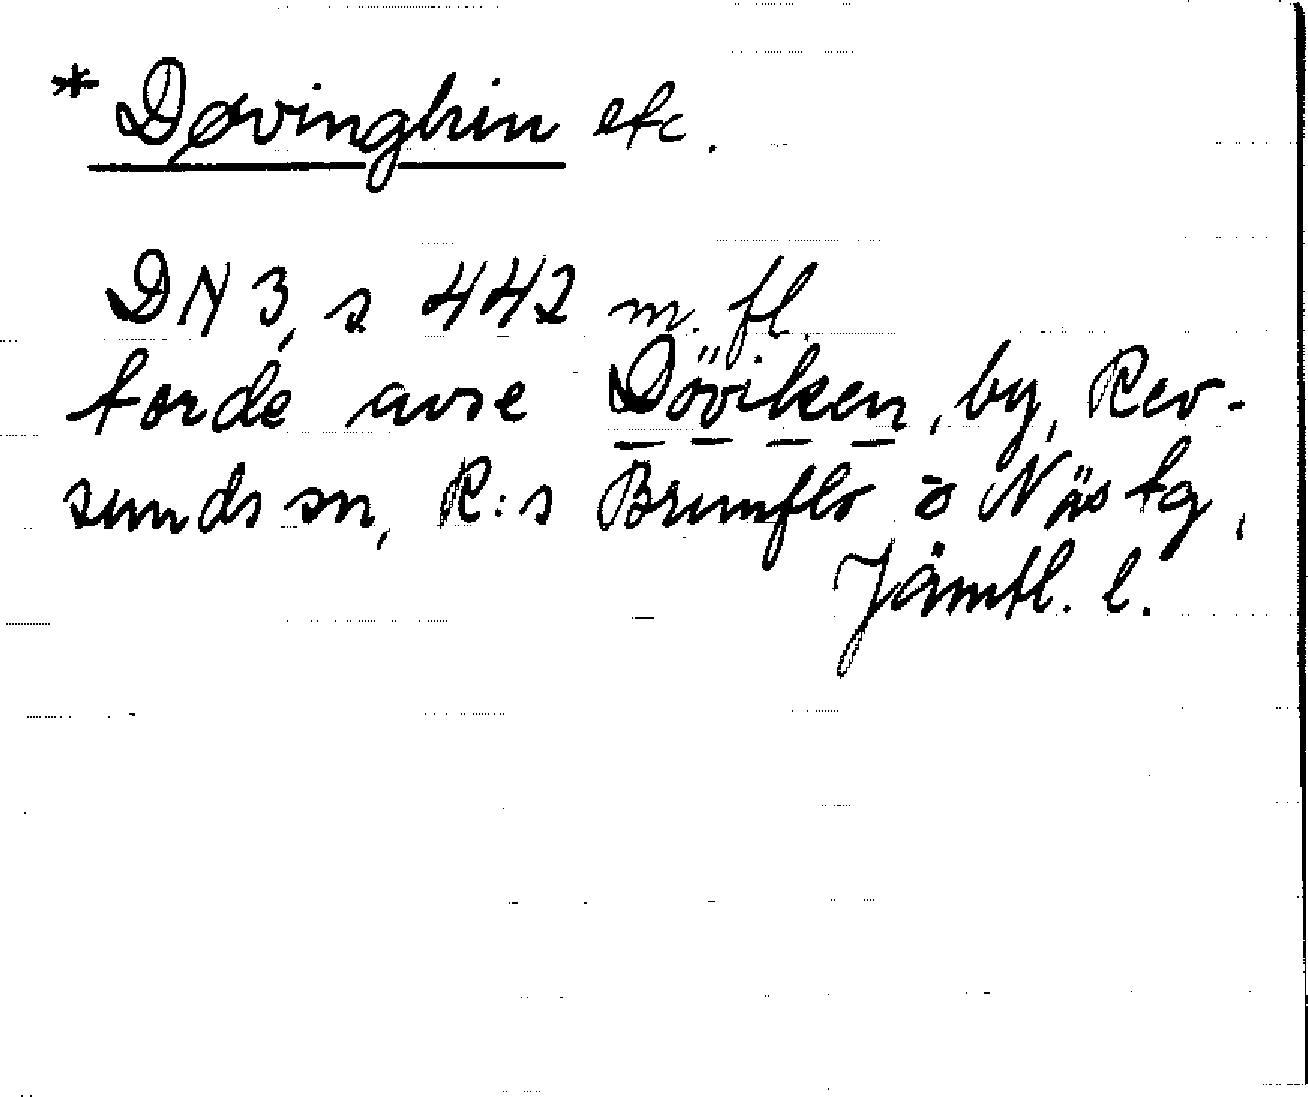 * Døvinghin etc.
DN 3, s 442 m. fl.
torde avse Döviken, by, Rev-
sunds sn, R:s Brunflo o Näs tg,
Jämtl. l.